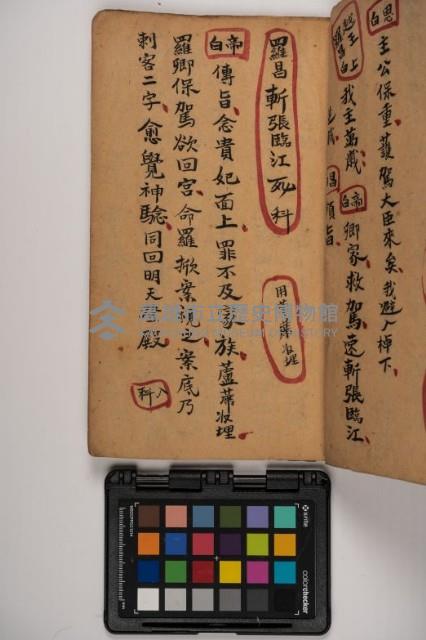 恩白 主公保重護駕大臣來矣我避入悼下
主上 我主萬歲 帝白 卿家救駕速斬張臨江
昌 領旨
羅昌斬張臨江死科
用芦蓆收埋
帝白 傳旨念貴妃面上罪不及家族蘆蓆收埋
羅卿保駕欲回宮命羅掀案視之案底乃
刺客二字愈覺神驗同回明天殿
入科
高雄市立歷史博物館
KAOHSIUNG MUSEUM OF HISTORY
x-rite
colorchecker